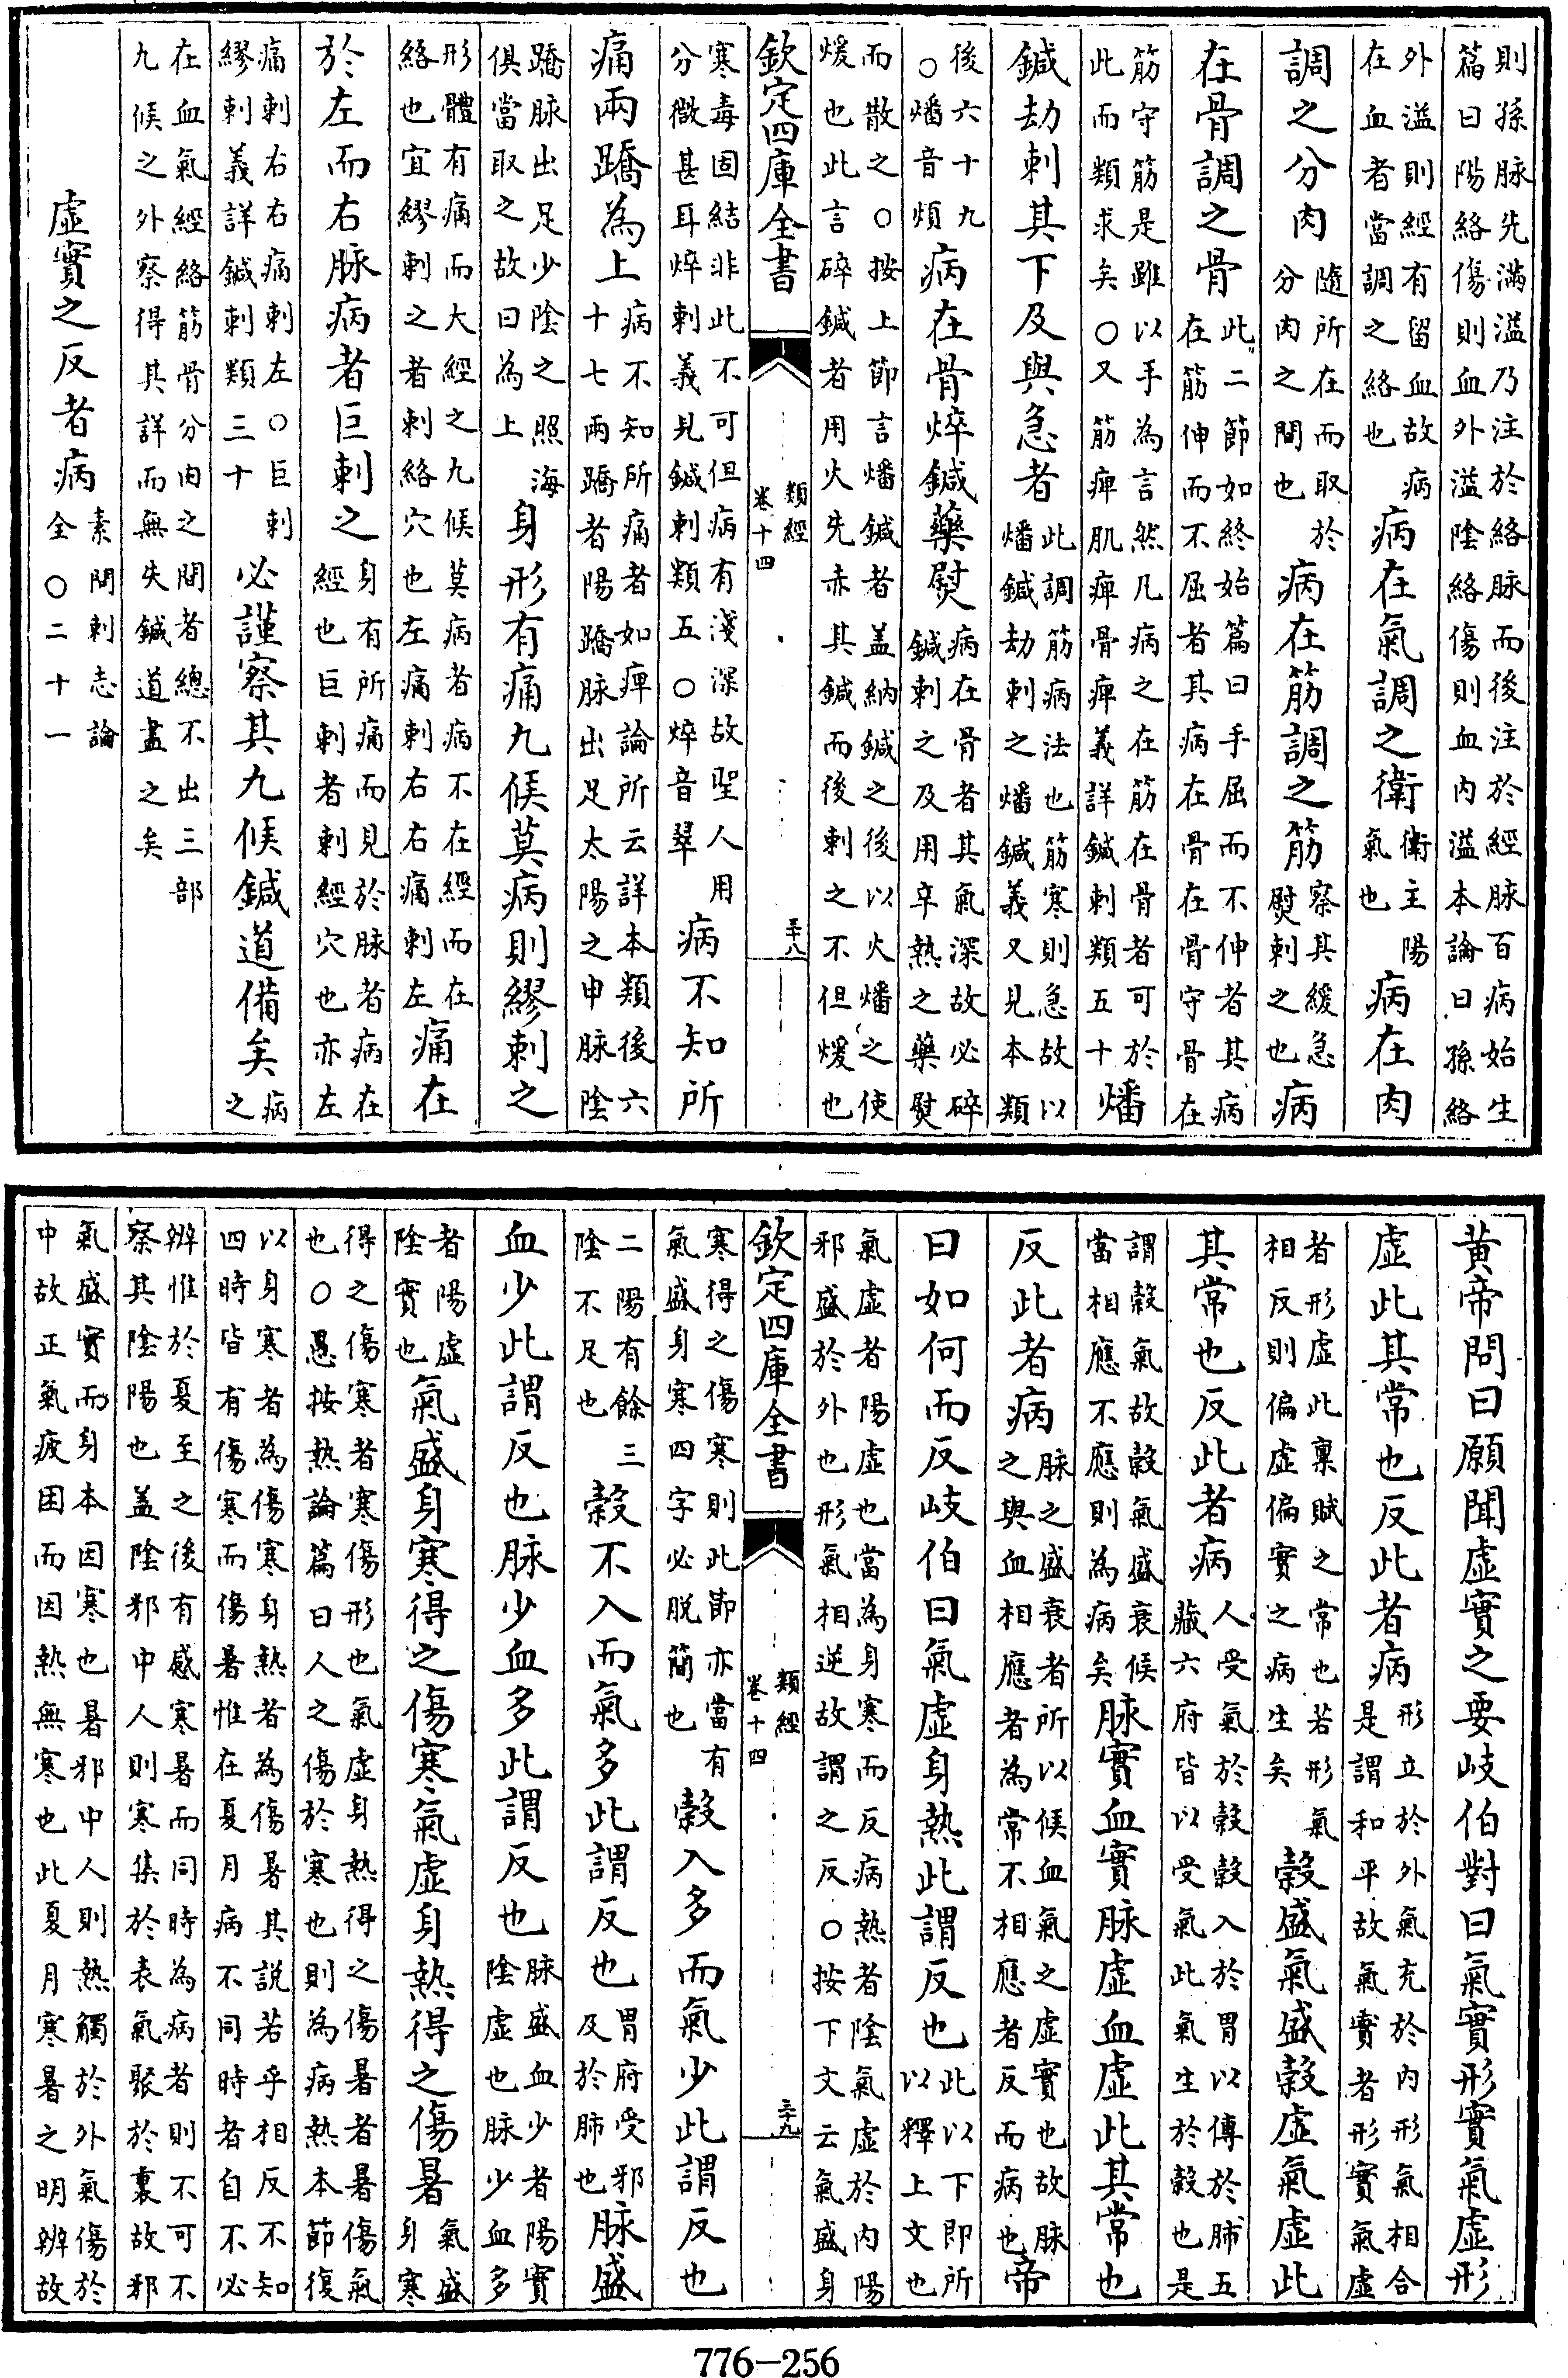 則孫脉先滿溢乃注於絡脉而後注於經脉百病始生
篇曰陽絡傷則血外溢陰絡傷則血内溢本論曰孫絡
外溢則經有留血故病在血者當調之絡也病在氣調之衛衛主陽氣也病在肉
調之分肉隨所在而取於分肉之間也病在筋調之筋察其緩急熨刺之也病
在骨調之骨此二節如終始篇曰手屈而不伸者其病在筋伸而不屈者其病在骨在骨守骨在
筋守筋是雖以手為言然凡病之在筋在骨者可於此而類求矣○又筋痺肌痺骨痺義詳鍼刺類五十燔
鍼劫刺其下及與急者此調筋病法也筋寒則急故以燔鍼劫刺之燔鍼義又見本類
後六十九○燔音煩病在骨焠鍼藥熨病在骨者其氣深故必碎鍼刺之及用辛熱之藥熨
而散之○按上節言燔鍼者盖納鍼之後以火燔之使
煖也此言碎鍼者用火先赤其鍼而後刺之不但煖也
欽定四庫全書 類經 卷十四 三十八
寒毒固結非此不可但病有淺深故聖人用分微甚耳焠刺義見鍼刺類五○焠音翠病不知所
痛兩蹻為上病不知所痛者如痺論所云詳本類後六十七兩蹻者陽蹻脉出足太陽之申脉陰
蹻脉出足少陰之照海俱當取之故曰為上身形有痛九候莫病則繆刺之
形體有痛而大經之九候莫病者病不在經而在絡也宜繆刺之者刺絡穴也左痛刺右右痛刺左痛在
於左而右脉病者巨刺之身有所痛而見於脉者病在經也巨刺者刺經穴也亦左
痛刺右右痛刺左○巨刺繆刺義詳鍼刺類三十必謹察其九候鍼道備矣病之
在血氣經絡筋骨分肉之間者總不出三部
九候之外察得其詳而無失鍼道盡之矣
虛實之反者病素問刺志論全○二十一
黄帝問曰願聞虛實之要岐伯對曰氣實形實氣虛形
虛此其常也反此者病形立於外氣充於内形氣相合是謂和平故氣實者形實氣虛
者形虛此禀賦之常也若形氣相反則偏虛偏實之病生矣穀盛氣盛穀虛氣虛此
其常也反此者病人受氣於穀穀入於胃以傳於肺五藏六府皆以受氣此氣生於穀也是
謂穀氣故穀氣盛衰候當相應不應則為病矣脉實血實脉虛血虛此其常也
反此者病脉之盛衰者所以候血氣之虛實也故脉之與血相應者為常不相應者反而病也帝
曰如何而反岐伯曰氣虛身熱此謂反也此以下即所以釋上文也
氣虛者陽虛也當為身寒而反病熱者陰氣虛於内陽
邪盛於外也形氣相逆故謂之反○按下文云氣盛身
欽定四庫全書 類經 卷十四 三十九
寒得之傷寒則此節亦當有氣盛身寒四字必脱簡也穀入多而氣少此謂反也
二陽有餘三陰不足也穀不入而氣多此謂反也胃府受邪及於肺也脉盛
血少此謂反也脉少血多此謂反也脉盛血少者陽實陰虛也脉少血多
者陽虛陰實也氣盛身寒得之傷寒氣虛身熱得之傷暑氣盛身寒
得之傷寒者寒傷形也氣虛身熱得之傷暑者暑傷氣
也○愚按熱論篇曰人之傷於寒也則為病熱本節復
以身寒者為傷寒身熱者為傷暑其説若乎相反不知
四時皆有傷寒而傷暑惟在夏月病不同時者自不必
辨惟於夏至之後有感寒暑而同時為病者則不可不
察其陰陽也盖陰邪中人則寒集於表氣聚於裏故邪
氣盛實而身本因寒也暑邪中人則熱觸於外氣傷於
中故正氣疲困而因熱無寒也此夏月寒暑之明辨故
776-256